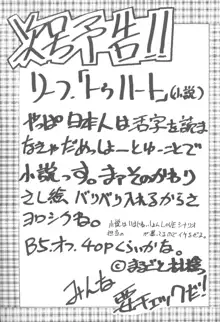 次号予告!!
リーフ「トゥハート」(小説)
やっぱ日本人は活字を読ま
なきゃだめっしょーとゆーことで
小説っす。まぁそのかわり
さし絵、バリバリ入れるからさ
ヨロシクね。
B5.オフ.40Pくらいかな。
みんな
要チェックだ!